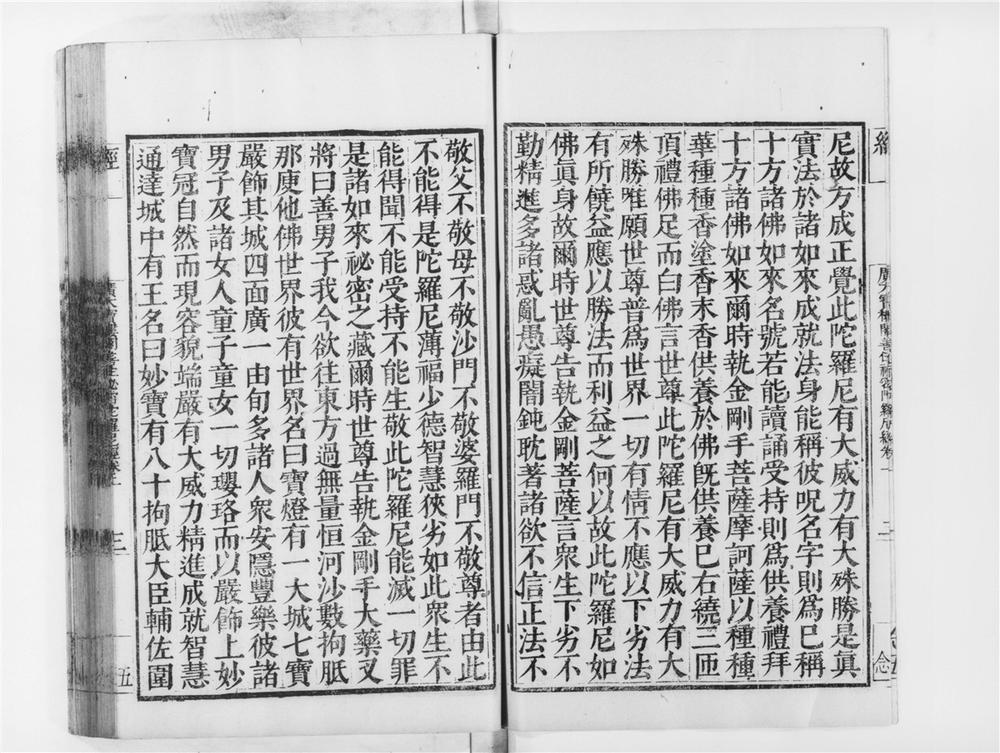 尼故方成正覺此陀羅尼有大威力有大殊勝是眞
實法於諸如來成就法身能稱彼呪名字則爲已稱
十方諸佛如來名號若能讀誦受持則爲供養禮拜
十方諸佛如來爾時執金剛手菩薩摩訶薩以種種
華種種香塗香末香供養於佛旣供養已右繞三匝
頂禮佛足而白佛言世尊此陀羅尼有大威力有大
殊勝唯願世尊普爲世界一切有情不應以下劣法
有所饒益應以勝法而利益之何以故此陀羅尼如
佛眞身故爾時世尊告執金剛菩薩言衆生下劣不
勤精進多諸惑亂愚癡闇鈍耽著諸欲不信正法不
敬父不敬母不敬沙門不敬婆羅門不敬尊者由此
不能得是陀羅尼薄福少德智慧狹劣如此衆生不
能得聞不能受持不能生敬此陀羅尼能滅一切罪
是諸如來祕密之藏爾時世尊告執金剛手大藥叉
將曰善男子我今欲往東方過無量恒河沙數拘胝
那庾他佛世界彼有世界名曰寶燈有一大城七寶
嚴飾其城四面廣一由旬多諸人衆安隱豐樂彼諸
男子及諸女人童子童女一切瓔珞而以嚴飾上妙
寶冠自然而現容貌端嚴有大威力精進成就智慧
通達城中有王名曰妙寶有八十拘胝大臣輔佐圍
經
三
五